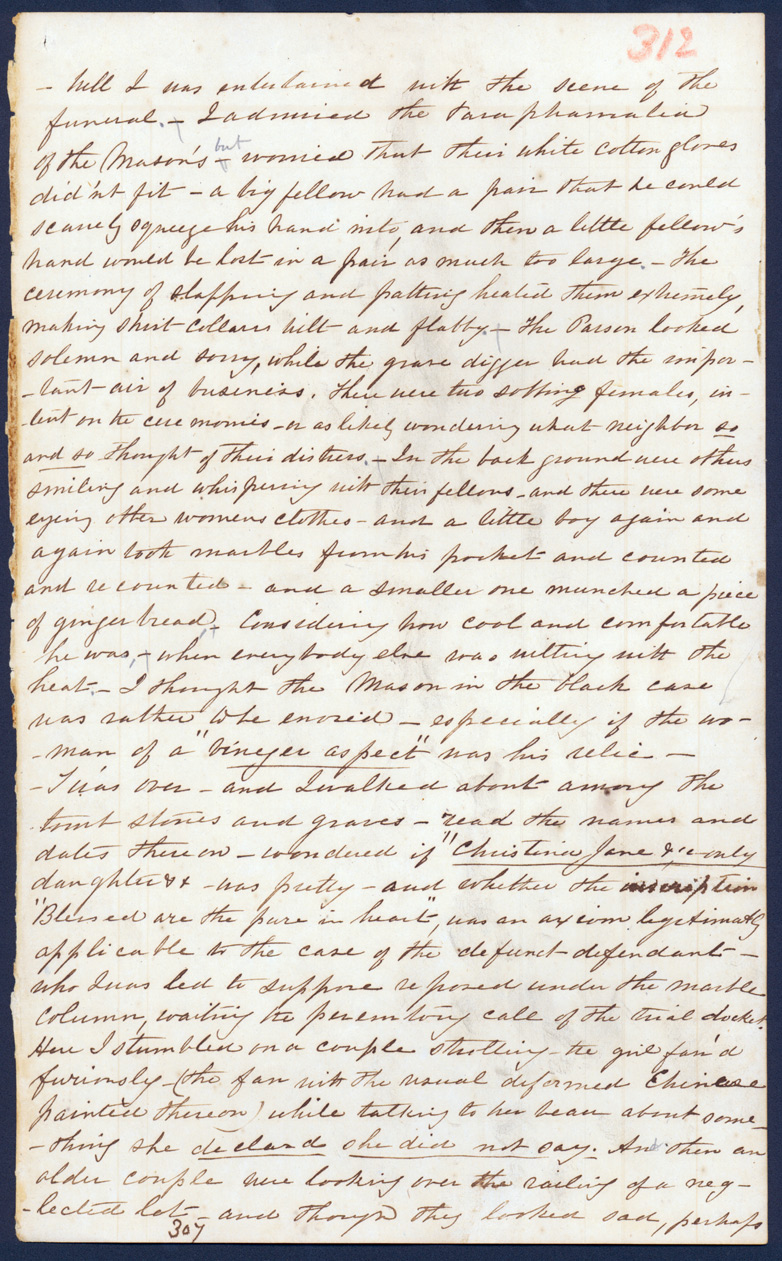 312
- hill I was entertained with the scene of the
funeral. - I admired the Paraphamalia
of the Mason's - but worried that their white cotton gloves
did'nt fit - a big fellow had a pair that he could
scarcely squeeze his hand into, and then a little fellow's
hand would be lost in a pair as much too large. - The
ceremony of slapping and patting heated them extremely,
making shirt collars wilt and flabby. - The Parson looked
solemn and sorry, while the grave digger had the impor-
-tant air of business. There were two sobbing females, in-
-tent on the ceremonies - or as likely wondering what neighbor so
and so thought of their distress. - In the back ground were others
smiling and whispering with their fellows - and there were some
eyeing other womens clothes - and a little boy again and
again took marbles from his pocket and counted
and recounted - and a smaller one munched a piece
of gingerbread. - Considering how cool and comfortable
he was, - when everybody else was wilting with the
heat. - I thought the Mason in the black case
was rather to be envied - especially if the wo-
-man of a "vineger aspect" was his relic -
- T'was over - and I walked about among the
tomb stones and graves - read the names and
dates thereon - wondered if "Christina Jane &c only
daughter &c - was pretty - and whether the inscription
"Blessed are the pure in heart", was an axiom legitimately
applicable to the case of the defunct defendant -
who I was led to suppose reposed under the marble
column, waiting the peremtory call of the trial docket.
Here I stumbled on a couple strolling - the girl fan'd
furiously - (the fan with the usual deformed Chinese
painted thereon) while talking to her beau about some-
-thing she declard she did not say. And then an
older couple were looking over the railing of a neg-
-lected lot - and though they looked sad, perhaps
307